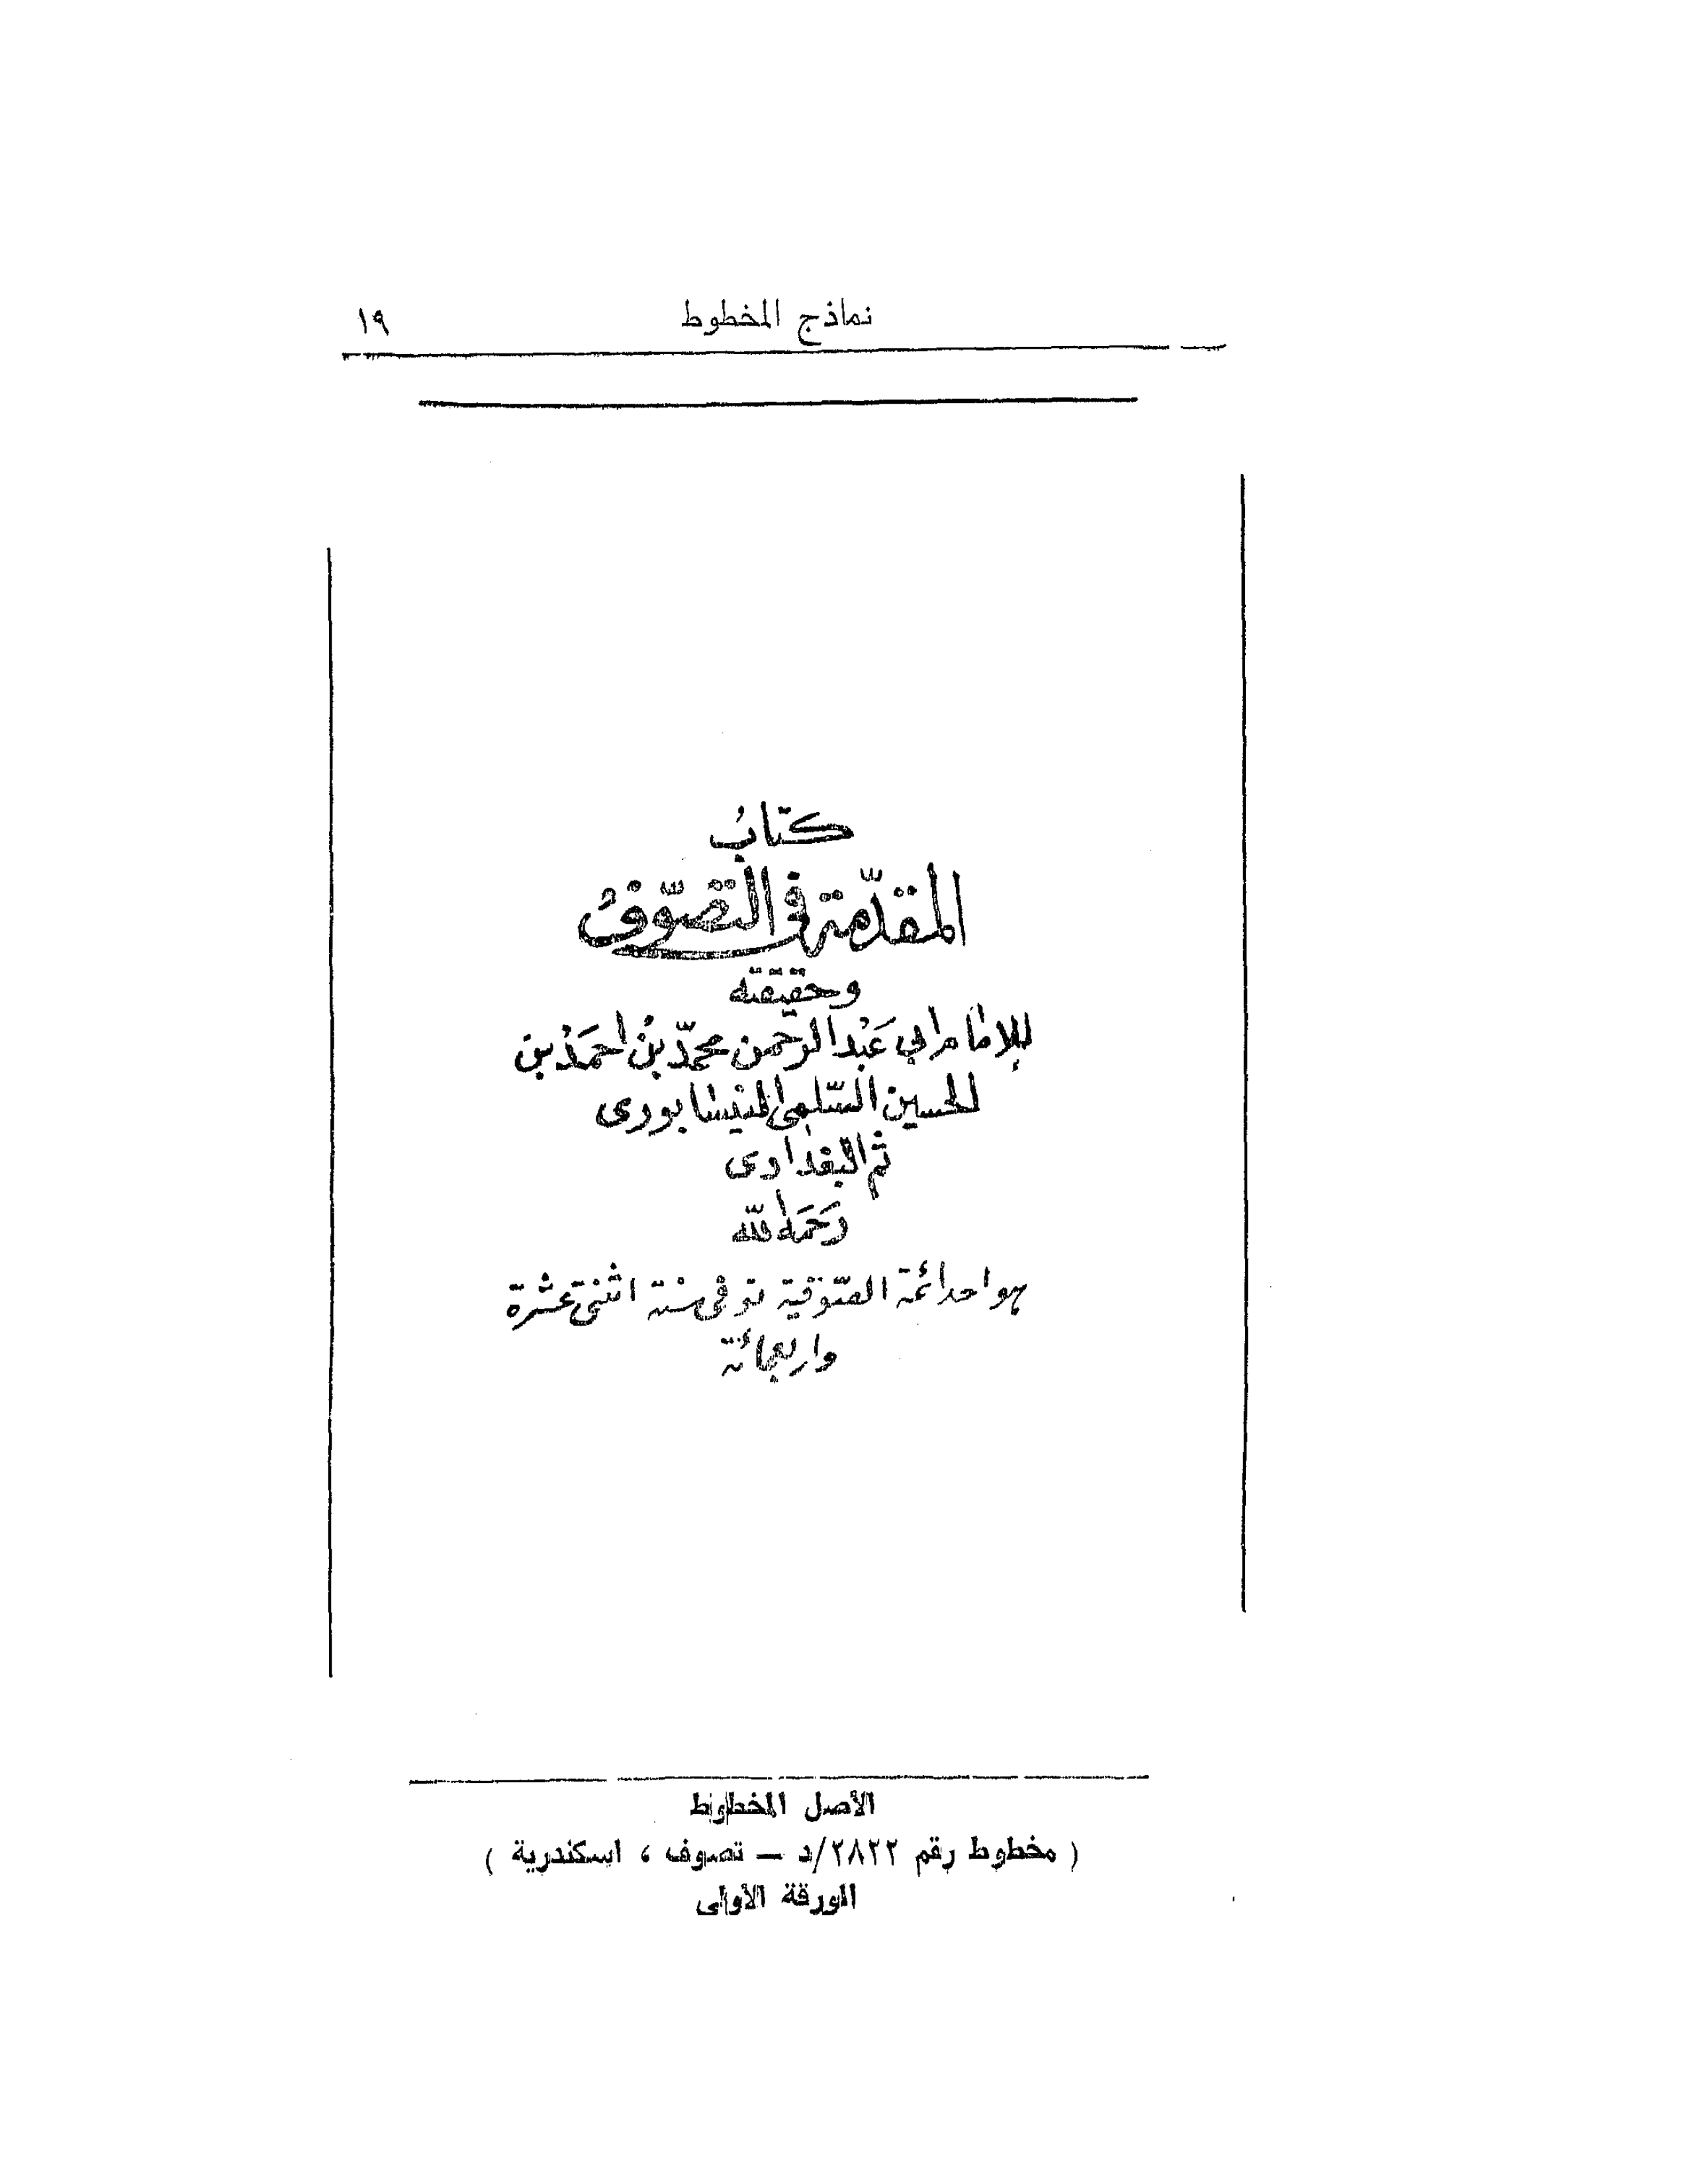 نماذج المخطوط ١٩
كتابُ
المقدّمة في التصوّفُ
وحقيقته
للإمام ابي عَبْد الرحمن محمّد بنُ احمَدْ بن
الحسين السّلمى النيسابورى
ثم البغدادى
رَحَمَهُ اللّه
هو احد ائمة الصّوفية توفى سنة اثنتى عشرة
واربعمائة
الأصل المخطوط
( مخطوط رقم ٢٨٢٢/د — تصوف ، اسكندرية )
الورقة الأولى